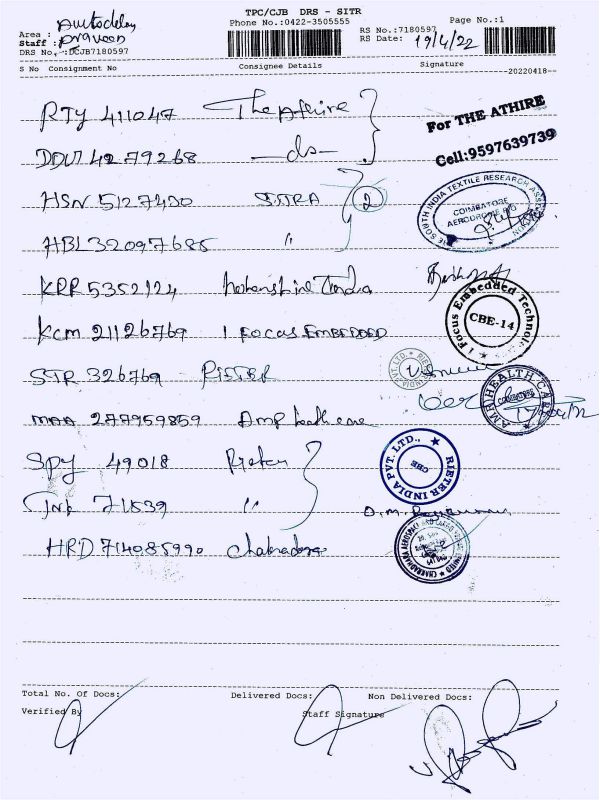 TPC/CJB DRS - SITR
Phone No.:0422-3505555
Page No.:1
Area :
Staff : praveen
DRS No.:DCJB7180597
RS No.:7180597
RS Date: 19/4/22
S No Consignment No Consignee Details Signature
20220418
RTY 411047 The Athire
For THE ATHIRE
Cell:9597639739
4279268 -do-
HSN 5127430 SITRA 2
THE SOUTH INDIA TEXTILE RESEARCH ASSOCIATION
COIMBATORE
AERODROME P.O
HBL 32097685 "
KRR 5352124 India
KCM 21126769 I FOCAS EMBEDDED
I Focus Embedded Technolo
CBE-14
STR 326769 - RIETER
PVT. LTD. RIETER INDIA
MAA 277959859 Amp health care
AMPHEALTH CARE
COIMBATORE
SPY 49018 Rieter
RIETER INDIA PVT. LTD.,
CBE
71539 "
HRD 714085990
Total No. Of Docs: Delivered Docs: Non Delivered Docs:
Verified By Staff Signature